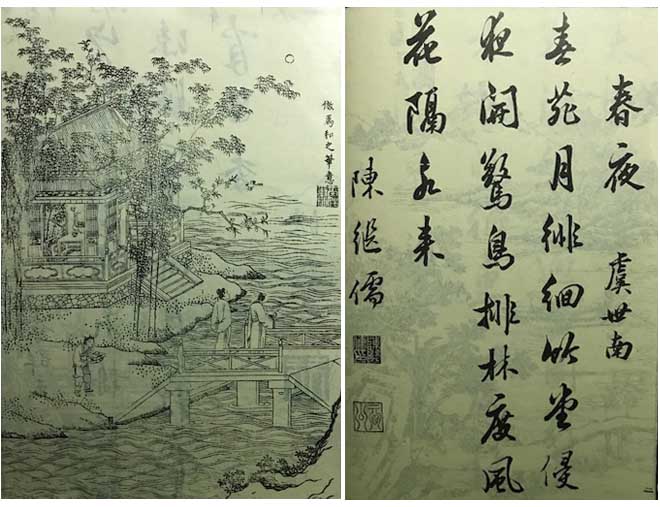 春夜 虞世南
春苑月徘徊竹堂侵
夜開驚鳥排林度風
花隔水来
陳継儒
倣馬和之筆意